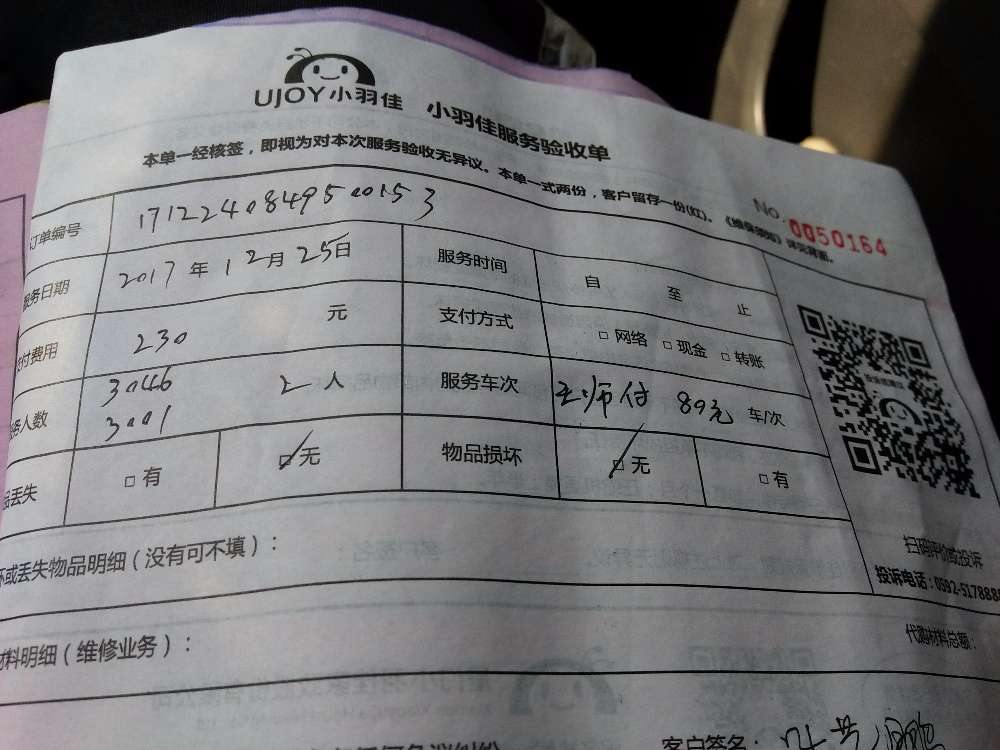 UJOY小羽佳 小羽佳服务验收单
本单一经核签，即视为对本次服务验收无异议。本单一式两份，客户留存一份(红)。《维保须知》详见背面。
No. 0050164
订单编号 17122408495000153
服务日期 2017年12月25日 服务时间 自 至 止
支付费用 230 元 支付方式 □网络 □现金 □转账
务人数 3046 2人 服务车次 王师付 80元 车/次
3001
品丢失 □有 □无 物品损坏 □无 □有
扫码评价或投诉
投诉电话：0592-517888
坏或丢失物品明细（没有可不填）：
材料明细（维修业务）：
代购材料总额：
客户签名：